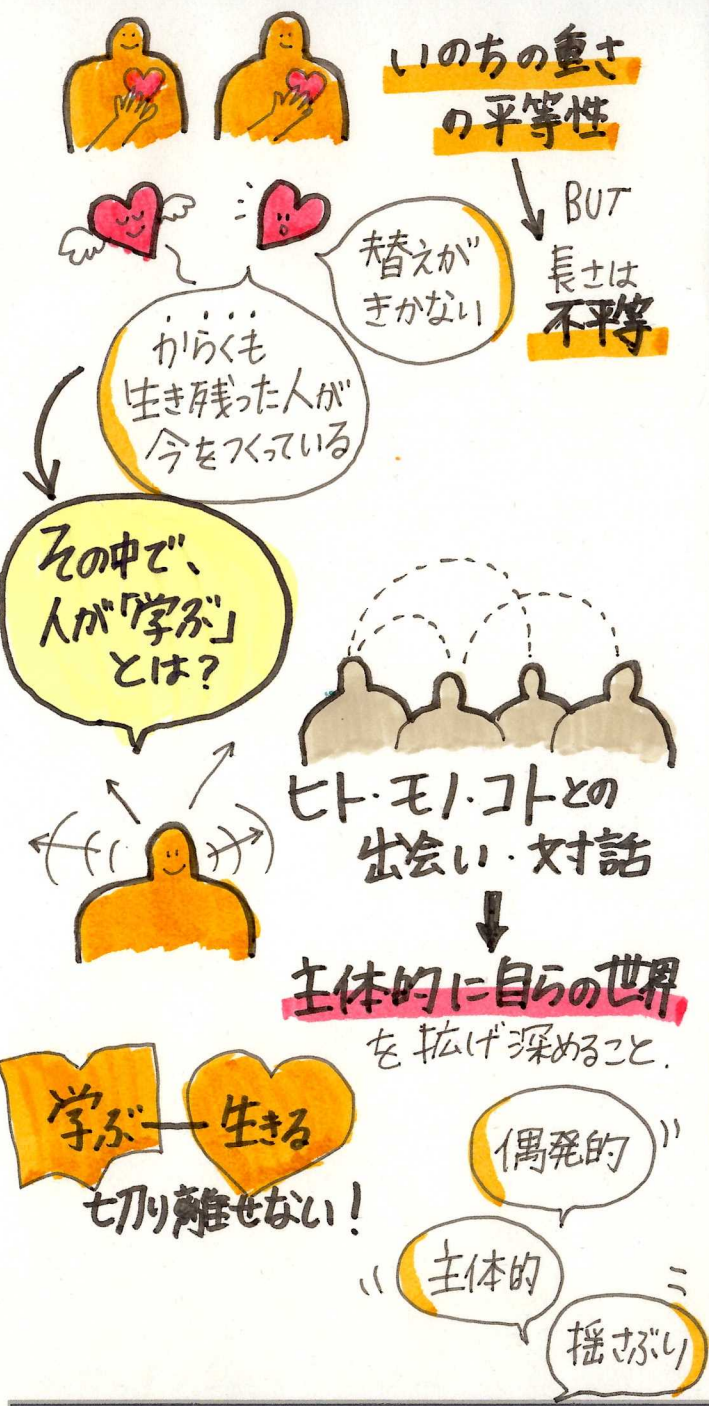 いのちの重さ
の平等性
BUT
長さは
不平等
替えが
きかない
からくも
生き残った人が
今をつくっている
その中で、
人が「学ぶ」
とは?
ヒト・モノ・コトとの
出会い・対話
主体的に自らの世界
を拡げ深めること.
学ぶ―生きる
切り離せない!
偶発的
主体的
揺さぶり